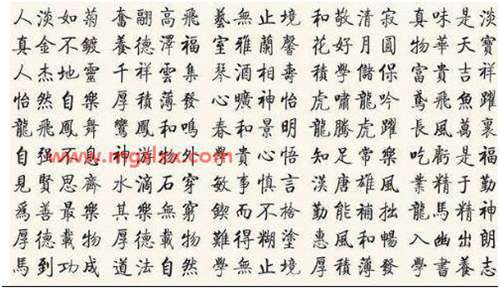 人淡如菊 奮翮高飛 藝無止境 和敬清寂 真味是淡
真金不鍍 養德澤福 室雅蘭馨 花好月圓 物華天寶
人杰地靈 千祥雲集 琴酒相壽 積學儲保 富貴吉祥
怡然自樂 厚積薄發 心曠神怡 虎嘯龍吟 鳶飛魚躍
龍飛鳳舞 鸞鳳和鳴 春和景明 龍騰虎躍 長風萬裏
自強不息 神游物外 學貴心悟 知足常樂 吃虧是福
www.mgslzx.com
見賢思齊 水滴石穿 敏事慎言 漢唐雄風 業精于勤
爲善最樂 其樂無窮 鍥而不捨 勤能補拙 龍馬精神
厚德載物 厚德載物 難得糊塗 惠風和暢 入幽出朗
馬到功成 道法自然 學無止境 厚積薄發 學書養志